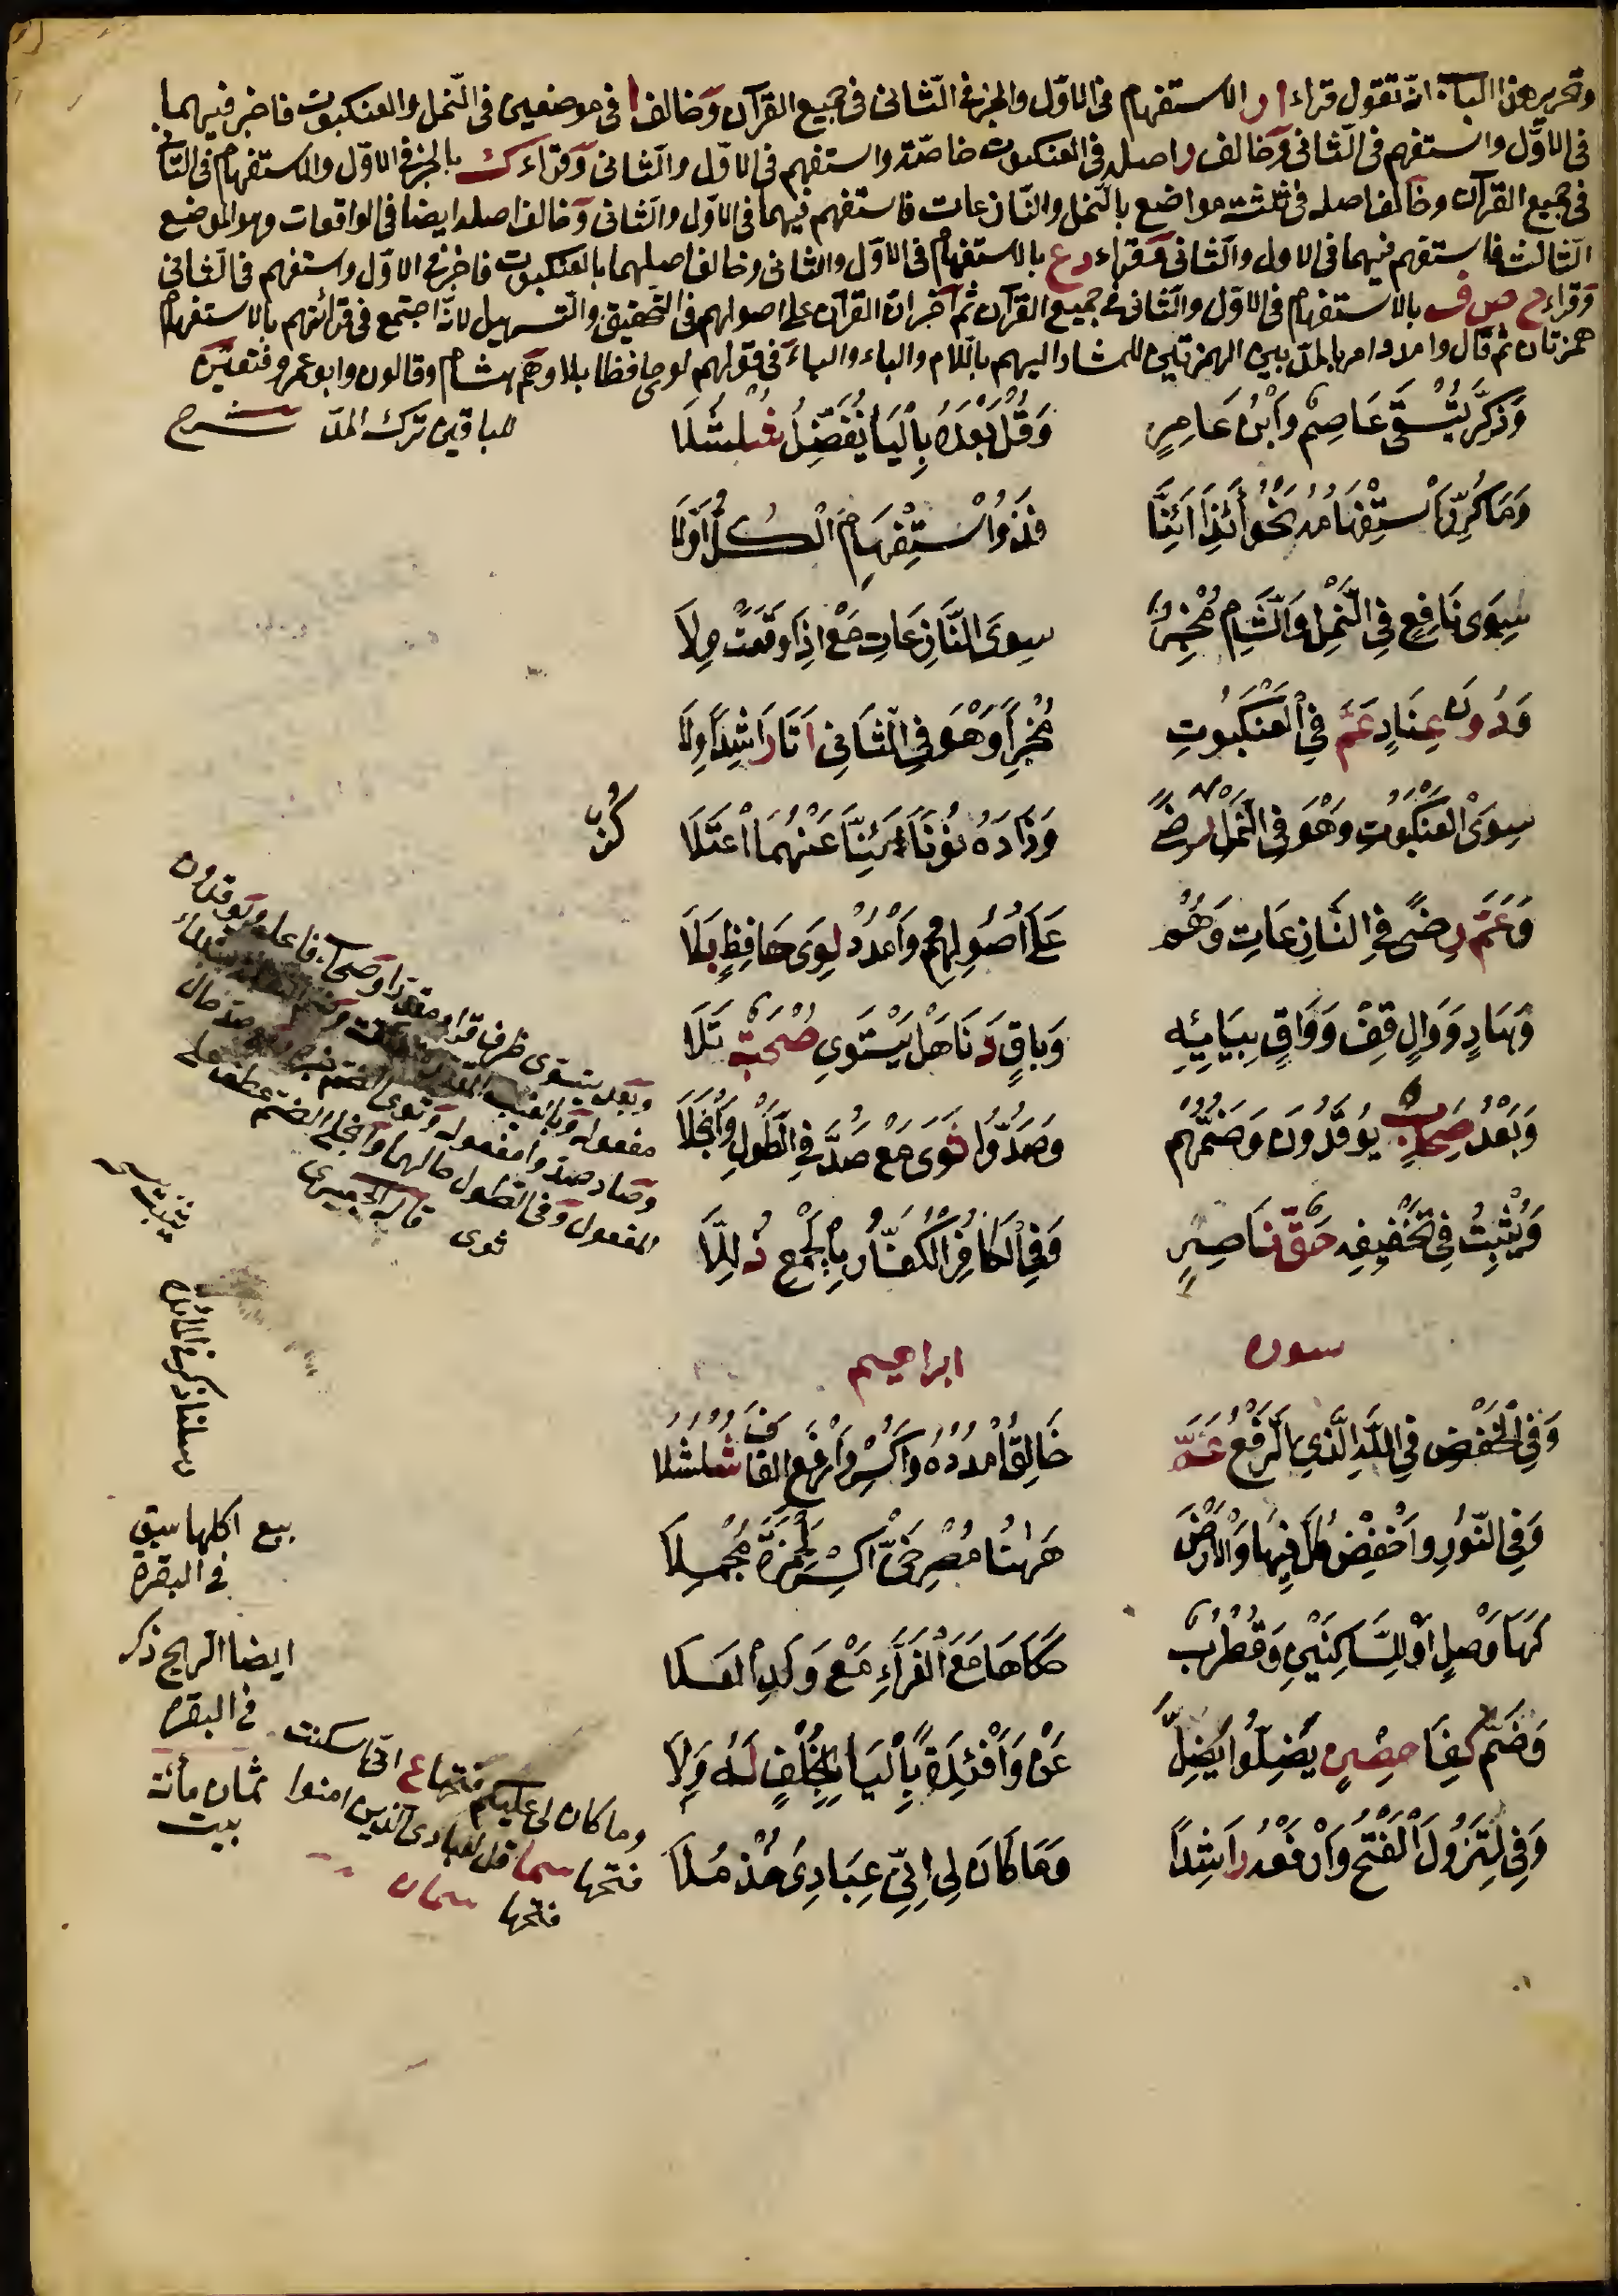 وتحرير هذا الباب ان تقول قراءا ر الاستفهام فى الاوّل والخبر فى الثانى فى جميع القرآن وخالف ا فى موضعين فى النمل والعنكبوت فاخبر فيهما
فى الاوّل واستفهم فى الثانى وخالف ر اصله فى العنكبوت خاصّة واستفهم فى الاوّل والثانى وقراء ك بالخبر فى الاوّل والاستفهام فى الثانى
فى جميع القرآن وخالف اصله فى ثلثة مواضع بالنمل والنازعات فاستفهم فيهما فى الاوّل والثانى وخالف اصله ايضا فى الواقعات وهو الموضع
الثالث فاستفهم فيهما فى الاول والثانى وقراء د ع بالاستفهام فى الاوّل والثانى وخالف اصلهما بالعنكبوت فاخبر فى الاوّل واستفهم فى الثانى
وقراء ح ص ف بالاستفهام فى الاوّل والثانى فى جميع القرآن ثم اخبر انّ القرآن على اصولهم فى التحقيق والتسهيل لانّه اجتمع فى قرائتهم بالاستفهام
همزتان ثم قال وامدد امر بالمدّ بين الهمزتين للمشار اليهم باللام والباء والباء فى قولهم لوى حافظ بلا وهم هشام وقالون وابو عمرو فتعيّن
للباقين ترك المدّ شرح
وَذَكَّرَ يُسْقَى عَاصِمٌ وَابْنُ عَامِرٍ وَقُلْ بَعْدَهُ بِالْيَا يُفَضِّلُ شُلْشُلَا
وَمَا كُرِّرَ اسْتِفْهَامُهُ نَحْوُ أَئِذَا أَئِنَّا فَذُو اسْتِفْهَامٍ الْكُلُّ أَوَّلَا
سِوَى نَافِعٍ فِى النَّمْلِ وَالشَّامِ مُخْبِرٌ سِوَى النَّازِعَاتِ مَعْ اِذَا وَقَعَتْ وِلَا
وَدُونَ عِنَادٍ عَمَّ فِى الْعَنْكَبُوتِ مُخْبِرًا وَهْوَ فِى الثَّانِى اَتَا رَاشِدًا وِلَا
سِوَى الْعَنْكَبُوتِ وَهْوَ فِى النَّمْلِ كُنْ رِضًى وَزَادَهُ نُونًا اِنَّنَا عَنْهُمَا اعْتَلَا
وَعَمَّ رِضًى فِى النَّازِعَاتِ وَهُمْ عَلَى اُصُولِهِمْ وَامْدُدْ لِوَى حَافِظٍ بَلَا
وَهَادٍ وَوَالٍ قِفْ وَوَاقٍ بِيَائِهِ وَبَاقٍ دَنَا هَلْ يَسْتَوِى صُحْبَةٌ تَلَا
وَبَعْدُ صِحَابٌ يُوقِدُونَ وَضَمُّهُمْ وَصُدُّوا ثَوَى مَعْ صُدَّ فِى الطَّوْلِ وَانْجَلَا
وَيُثْبِتُ فِى تَخْفِيفِهِ حَقُّ نَاصِرٍ وَفِى الْكَافِرُ الْكُفَّارُ بِالْجَمْعِ ذُلِّلَا
وبعد يستوى ظرف
ثوى قاله الجعبرى
رسلنا ذكر فى المائدة
سورة ابراهيم
وَفِى الْخَفْضِ فِى اللّٰهِ الَّذِى الرَّفْعُ عَمَّ خَالِقُ امْدُدْهُ وَاكْسِرْ وَارْفَعِ الْقَافَ شُلْشُلَا
وَفِى النُّورِ وَاخْفِضْ كُلَّ فِيهَا وَالْاَرْضَ هٰهُنَا مُصْرِخِىَّ اكْسِرْ لِحَمْزَةَ مُجْمِلَا
كَهَا وَصْلٍ اَوْ لِلسَّاكِنَيْنِ وَقُطْرُبٌ حَكَاهَا مَعَ الْفَرَّاءِ مَعْ وَلَدِ الْعَلَا
وَضُمَّ كِفَا حِصْنٍ يَضِلُّوا يَضِلَّ عَنْ وَاَفْئِدَةً بِالْيَا بِخُلْفٍ لَهُ وِلَا
وَفِى لِتَزُولَ الْفَتْحُ وَارْفَعْهُ رَاشِدًا وَمَا كَانَ لِى اِنِّى عِبَادِىَ خُذْ مُلَا
بيع اكلها سبق
فى البقرة
ايضا الريح ذكر
فى البقرة
ثمان مأئة
بيت
وما كان لى عليكم فتحها ع انّى اسكنت
فتحها سما قل لعبادى الذين امنوا
فتحها